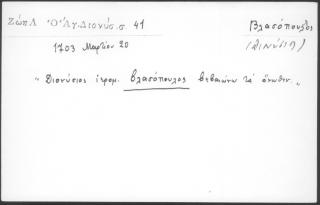 Ζώπλ Ὁ Ἅγ. Διονύσ. σ. 41
Βλασόπουλος
(Διονύσιος)
1703 Μαρτίου 20
„ Διονύσιος ἱερομ. Βλασόπουλος βεβαιώνω τά ἄνωθεν „